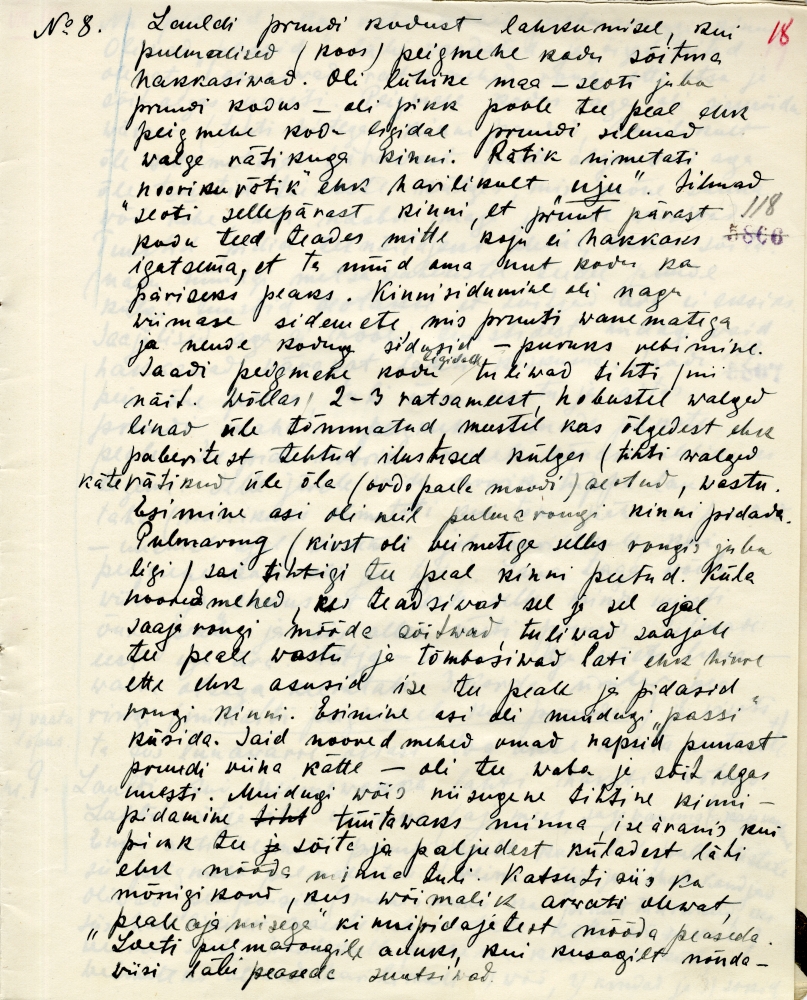 No 8. Lauldi pruudi kodust lahkumisel, kui 18
pulmalised (koos) peigmehe kodu sõitma
hakkasiwad. Oli lühike maa – seoti juba
pruudi kodus – oli pikk poole tee peal ehk
peigmehe kodu ligidal pruudi silmad
walge rätikuga kinni. Rätik nimetati
"nooriku rõtik" ehk harilikult uju". Silmad
seoti sellepärast kinni, et pruut pärast 118
kodu teed teades mitte koju ei hakkaks 5866
igatsema, et ta nüüd oma uut kodu ka
päriseks peaks. Kinnisidumine oli nagu
wiimase sidemete, mis pruuti wanematega
ja nende koduga sidusid – puruks rebimine.
Saadi peigmehe kodu ligidale, tuliwad tihti (nii
näit. Wõllas) 2–3 ratsameest, hobustel walged
linad üle tõmmatud meestel kas õlgedest ehk
paberitest tehtud ilustused külges (tihti walged
käterätikud üle õla (ordopaela moodi) seotud, wastu.
Esimine asi oli neil pulmarongi kinni pidada.
Pulmarong (kirst oli veimetega selles rongis juba
ligi) sai tihtigi tee peal kinni peetud. Küla
noored mehed, kes teadsiwad sel ja sel ajal
saajarongi mööda sõitwad, tuliwad saajale
tee peale wastu ja tõmbasiwad lati ehk
ette ehk asusid ise tee peale ja pidasid
rongi kinni. Esimine asi oli muidugi "passi"
küsida. Said noored mehed omad napsid punast
pruudi viina kätte – oli tee waba ja sõit algas
uuesti. Muidugi wõis niisugene tihtine kinni-
pidamine tiht tüütawaks minna, iseäranis kui
pikk tee ja sõita ja paljudest küladest läbi
ehk mööda minna tuli. Katsuti siis ka
mõnigikord, kus wõimalik arwati olewat,
"pealeajamisega" kinnipidajatest mööda peaseda.
"Loeti pulmarongile auuks, kui kusagilt nõnda-
wiisi läbi peaseda suutsiwad.